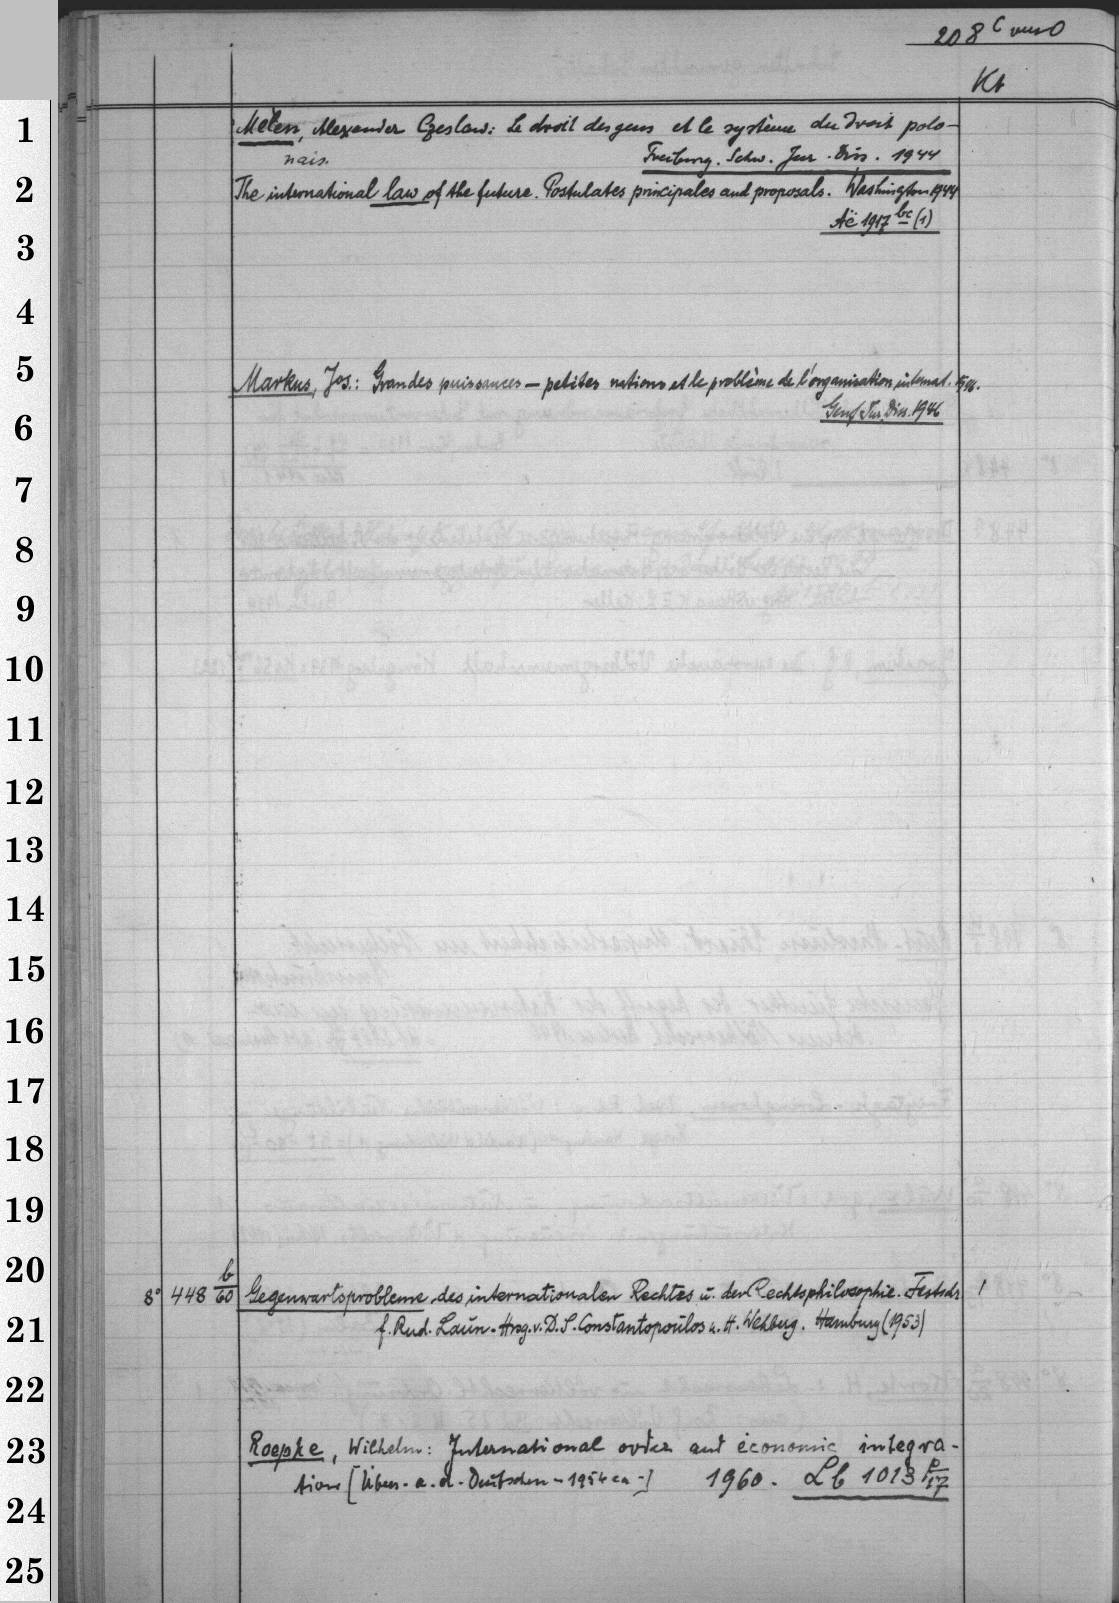 208 c verso
Kt
1
Melen, Alexander Czeslaw: Le droit des gens et le système du droit polo-
nais. Freiburg. Schw. Jur. Diss. 1944
2
The international law of the future. Postulates principales and proposals. Washington 1944
Aë 1917 bc (1)
3
4
5
Markus, Jos.: Grandes puissances — petites nations et le problème de l'organisation internat.
6
Genf Jur. Diss. 1946
7
8
9
10
11
12
13
14
15
16
17
18
19
20
8° 448 b/60 Gegenwartsprobleme des internationalen Rechtes u. der Rechtsphilosophie. Festschr. 1
21
f. Rud. Laun. Hrsg. v. D. S. Constantopoulos u. H. Wehberg. Hamburg (1953)
22
23
Roepke, Wilhelm: International order and economic integra-
tion [Übers. a. d. Deutschen - 1954 ca -] 1960. Lb 1013 p/17
24
25